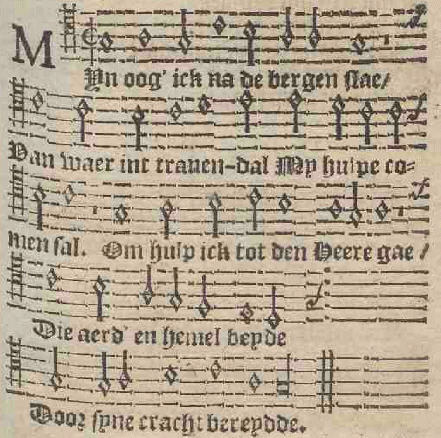 MYn oog' ick na de bergen slae/
Van waer int tranen-dal My hulpe co-
men sal. Om hulp ick tot den Heere gae /
Die aerd' en hemel beyde
Door syne cracht bereydde.